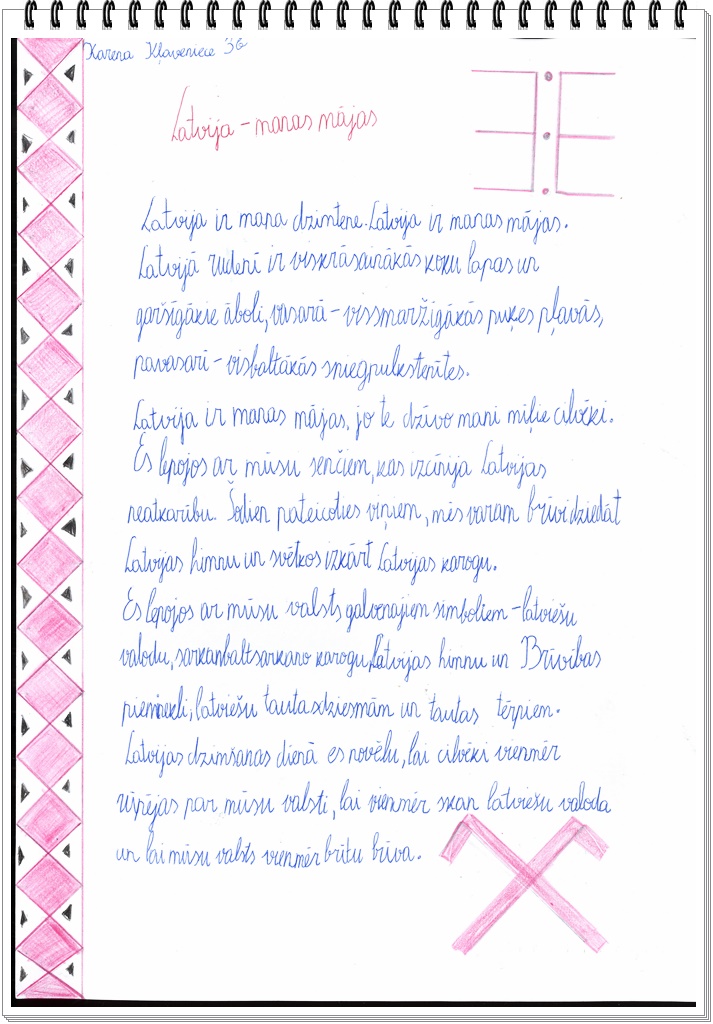 Karena Kļaveniece 3G
Latvija - manas mājas
Latvija ir mana dzimtene. Latvija ir manas mājas.
Latvijā rudenī ir viskrāsainākās koku lapas un
garšīgākie āboli, vasarā - vissmaržīgākās puķes pļavās,
pavasarī - visbaltākās sniegpulkstenītes.
Latvija ir manas mājas, jo te dzīvo mani mīļie cilvēki.
Es lepojos ar mūsu senčiem, kas izcīnīja Latvijas
neatkarību. Šodien pateicoties viņiem, mēs varam brīvi dziedāt
Latvijas himnu un svētkos izkārt Latvijas karogu.
Es lepojos ar mūsu valsts galvenajiem simboliem - latviešu
valodu, sarkanbaltsarkano karogu, Latvijas himnu un Brīvības
pieminekli, latviešu tautasdziesmām un tautas tērpiem.
Latvijas dzimšanas dienā es novēlu, lai cilvēki vienmēr
rūpējas par mūsu valsti, lai vienmēr skan latviešu valoda
un lai mūsu valsts vienmēr būtu brīva.